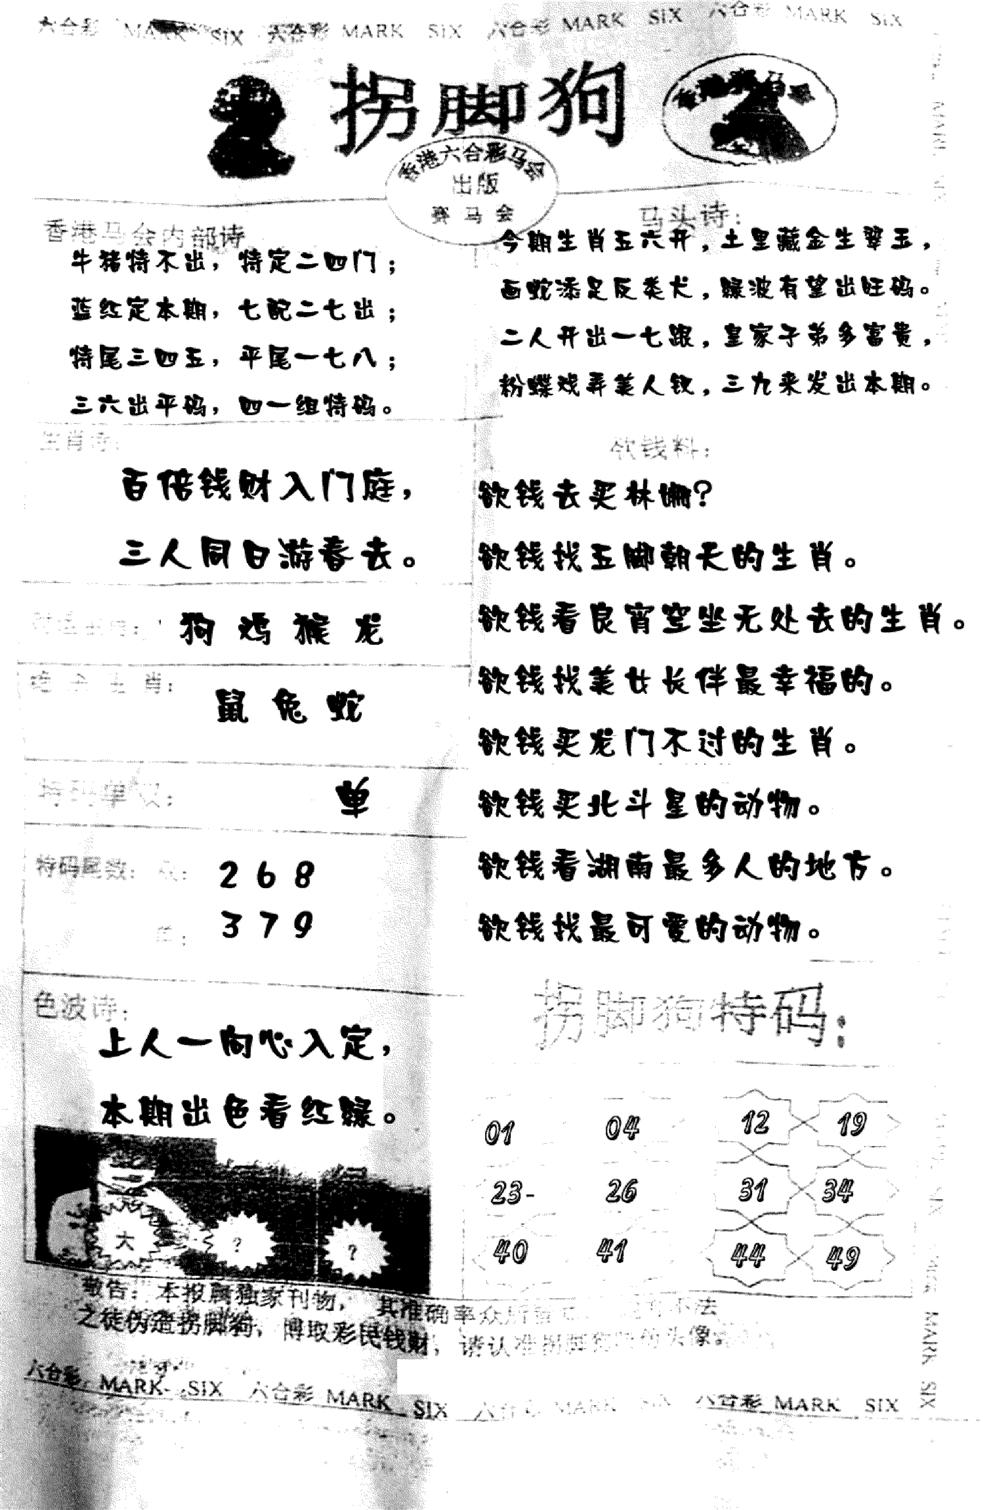 六合彩 MARK SIX 六合彩 MARK SIX 六合彩 MARK SIX 六合彩 MARK SIX
拐脚狗
香港赛马会
香港六合彩马会
出版
赛马会
香港马会内部诗
牛猪特不出，特定二四门；
蓝红定本期，七配二七出；
特尾三四五，平尾一七八；
三六出平码，四一组特码。
马头诗：
今期生肖五六开，土里藏金生翠玉，
画蛇添足反类犬，绿波有望出旺码。
二人开出一七跟，皇家子弟多富贵，
粉蝶戏弄美人钗，三九来发出本期。
生肖诗：
百倍钱财入门庭，
三人同日游春去。
狗 鸡 猴 龙
绝杀生肖：
鼠 兔 蛇
特码单双：
单
特码尾数：双：
2 6 8
单：
3 7 9
欲钱料：
欲钱去买林姗？
欲钱找五脚朝天的生肖。
欲钱看良宵空坐无处去的生肖。
欲钱找美女长伴最幸福的。
欲钱买龙门不过的生肖。
欲钱买北斗星的动物。
欲钱看湖南最多人的地方。
欲钱找最可爱的动物。
色波诗：
上人一向心入定，
本期出色看红绿。
大 ? ?
拐脚狗特码：
01 04 12 19
23- 26 31 34
40 41 44 49
敬告：本报属独家刊物，其准确率众所
之徒伪造拐脚狗，博取彩民钱财，请认准拐脚狗 头像
六合彩 MARK SIX 六合彩 MARK SIX 六合彩 MARK SIX 六合彩 MARK SIX
MARK SIX